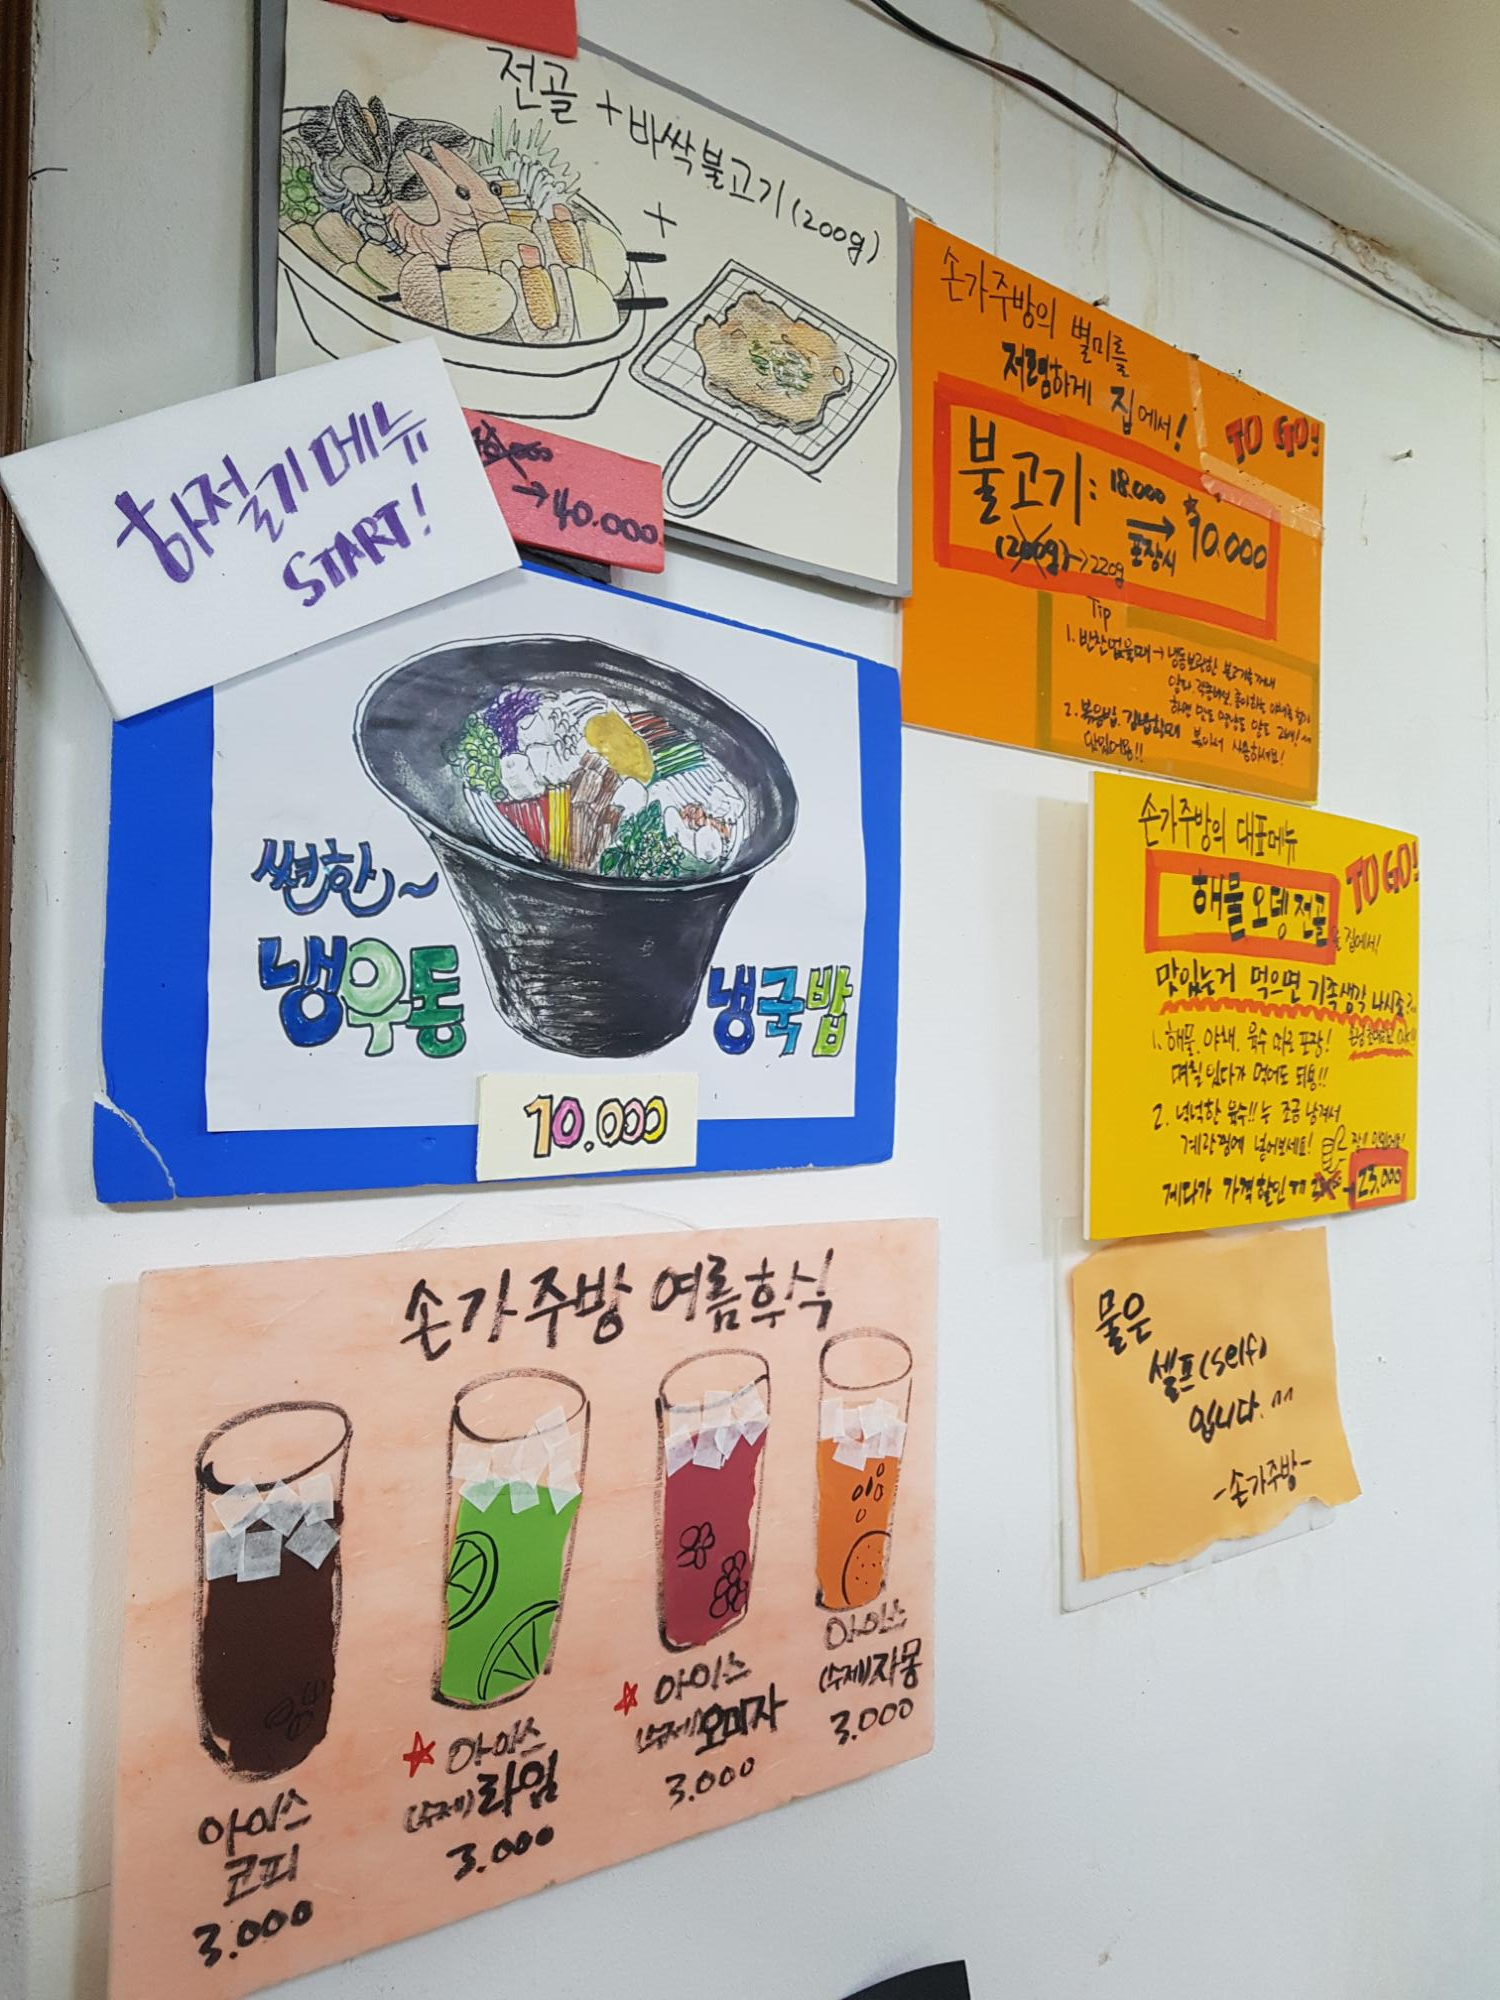 전골 + 바싹불고기 (200g)
+
→ 40.000
하절기 메뉴
START!
썬한~
냉우동
냉국밥
10.000
손가주방의 별미를
저렴하게 집에서!
TO GO!!
불고기: 18.000 → 10.000
포장시
(200g) → 220g
Tip
1. 반찬없을때 → 냉동보관한 불고기를 꺼내
2. 볶음밥, 김밥할때 볶아서 사용하세요!
맛있어용!!
손가주방의 대표메뉴
TO GO!
해물오뎅전골을 집에서!
맛있는거 먹으면 가족생각 나시죠?
1. 해물, 야채, 육수 따로 포장!
며칠 있다가 먹어도 되용!!
2. 넉넉한 육수!!는 조금 남겨서
계란찜에 넣어보세요!
게다가 가격할인까지
→ 23.000
물은
셀프(self)
입니다. ^^
-손가주방-
손가주방 여름후식
아이스
코피
3.000
아이스
(수제)라임
3.000
아이스
(수제)오미자
3.000
아이스
(수제)자몽
3.000